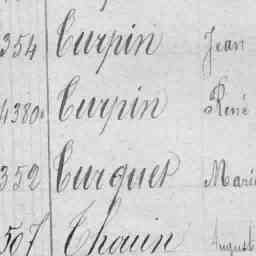 354 Turpin Jean
4380 Turpin René
352 Turquet Mari
507 Thouin August